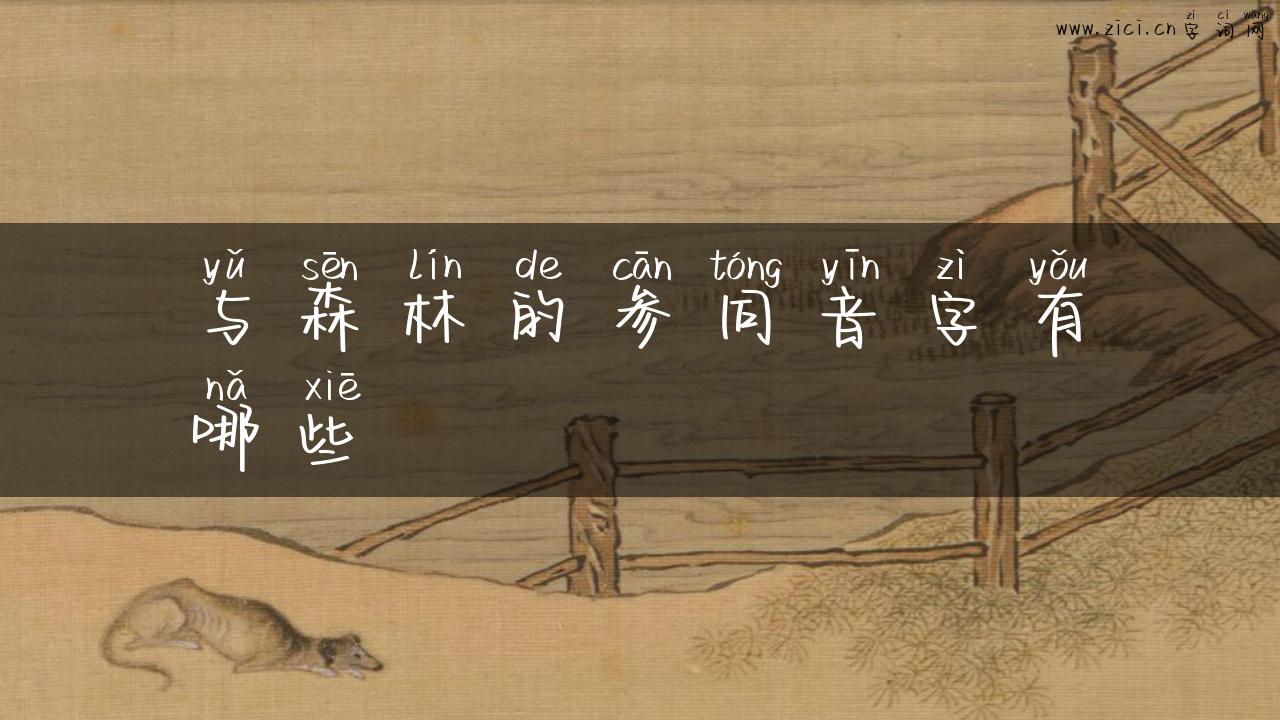 zì cí wǎng
www.zici.cn 字词网
yǔ sēn lín de cān tóng yīn zì yǒu
与森林的参同音字有
nǎ xiē
哪些